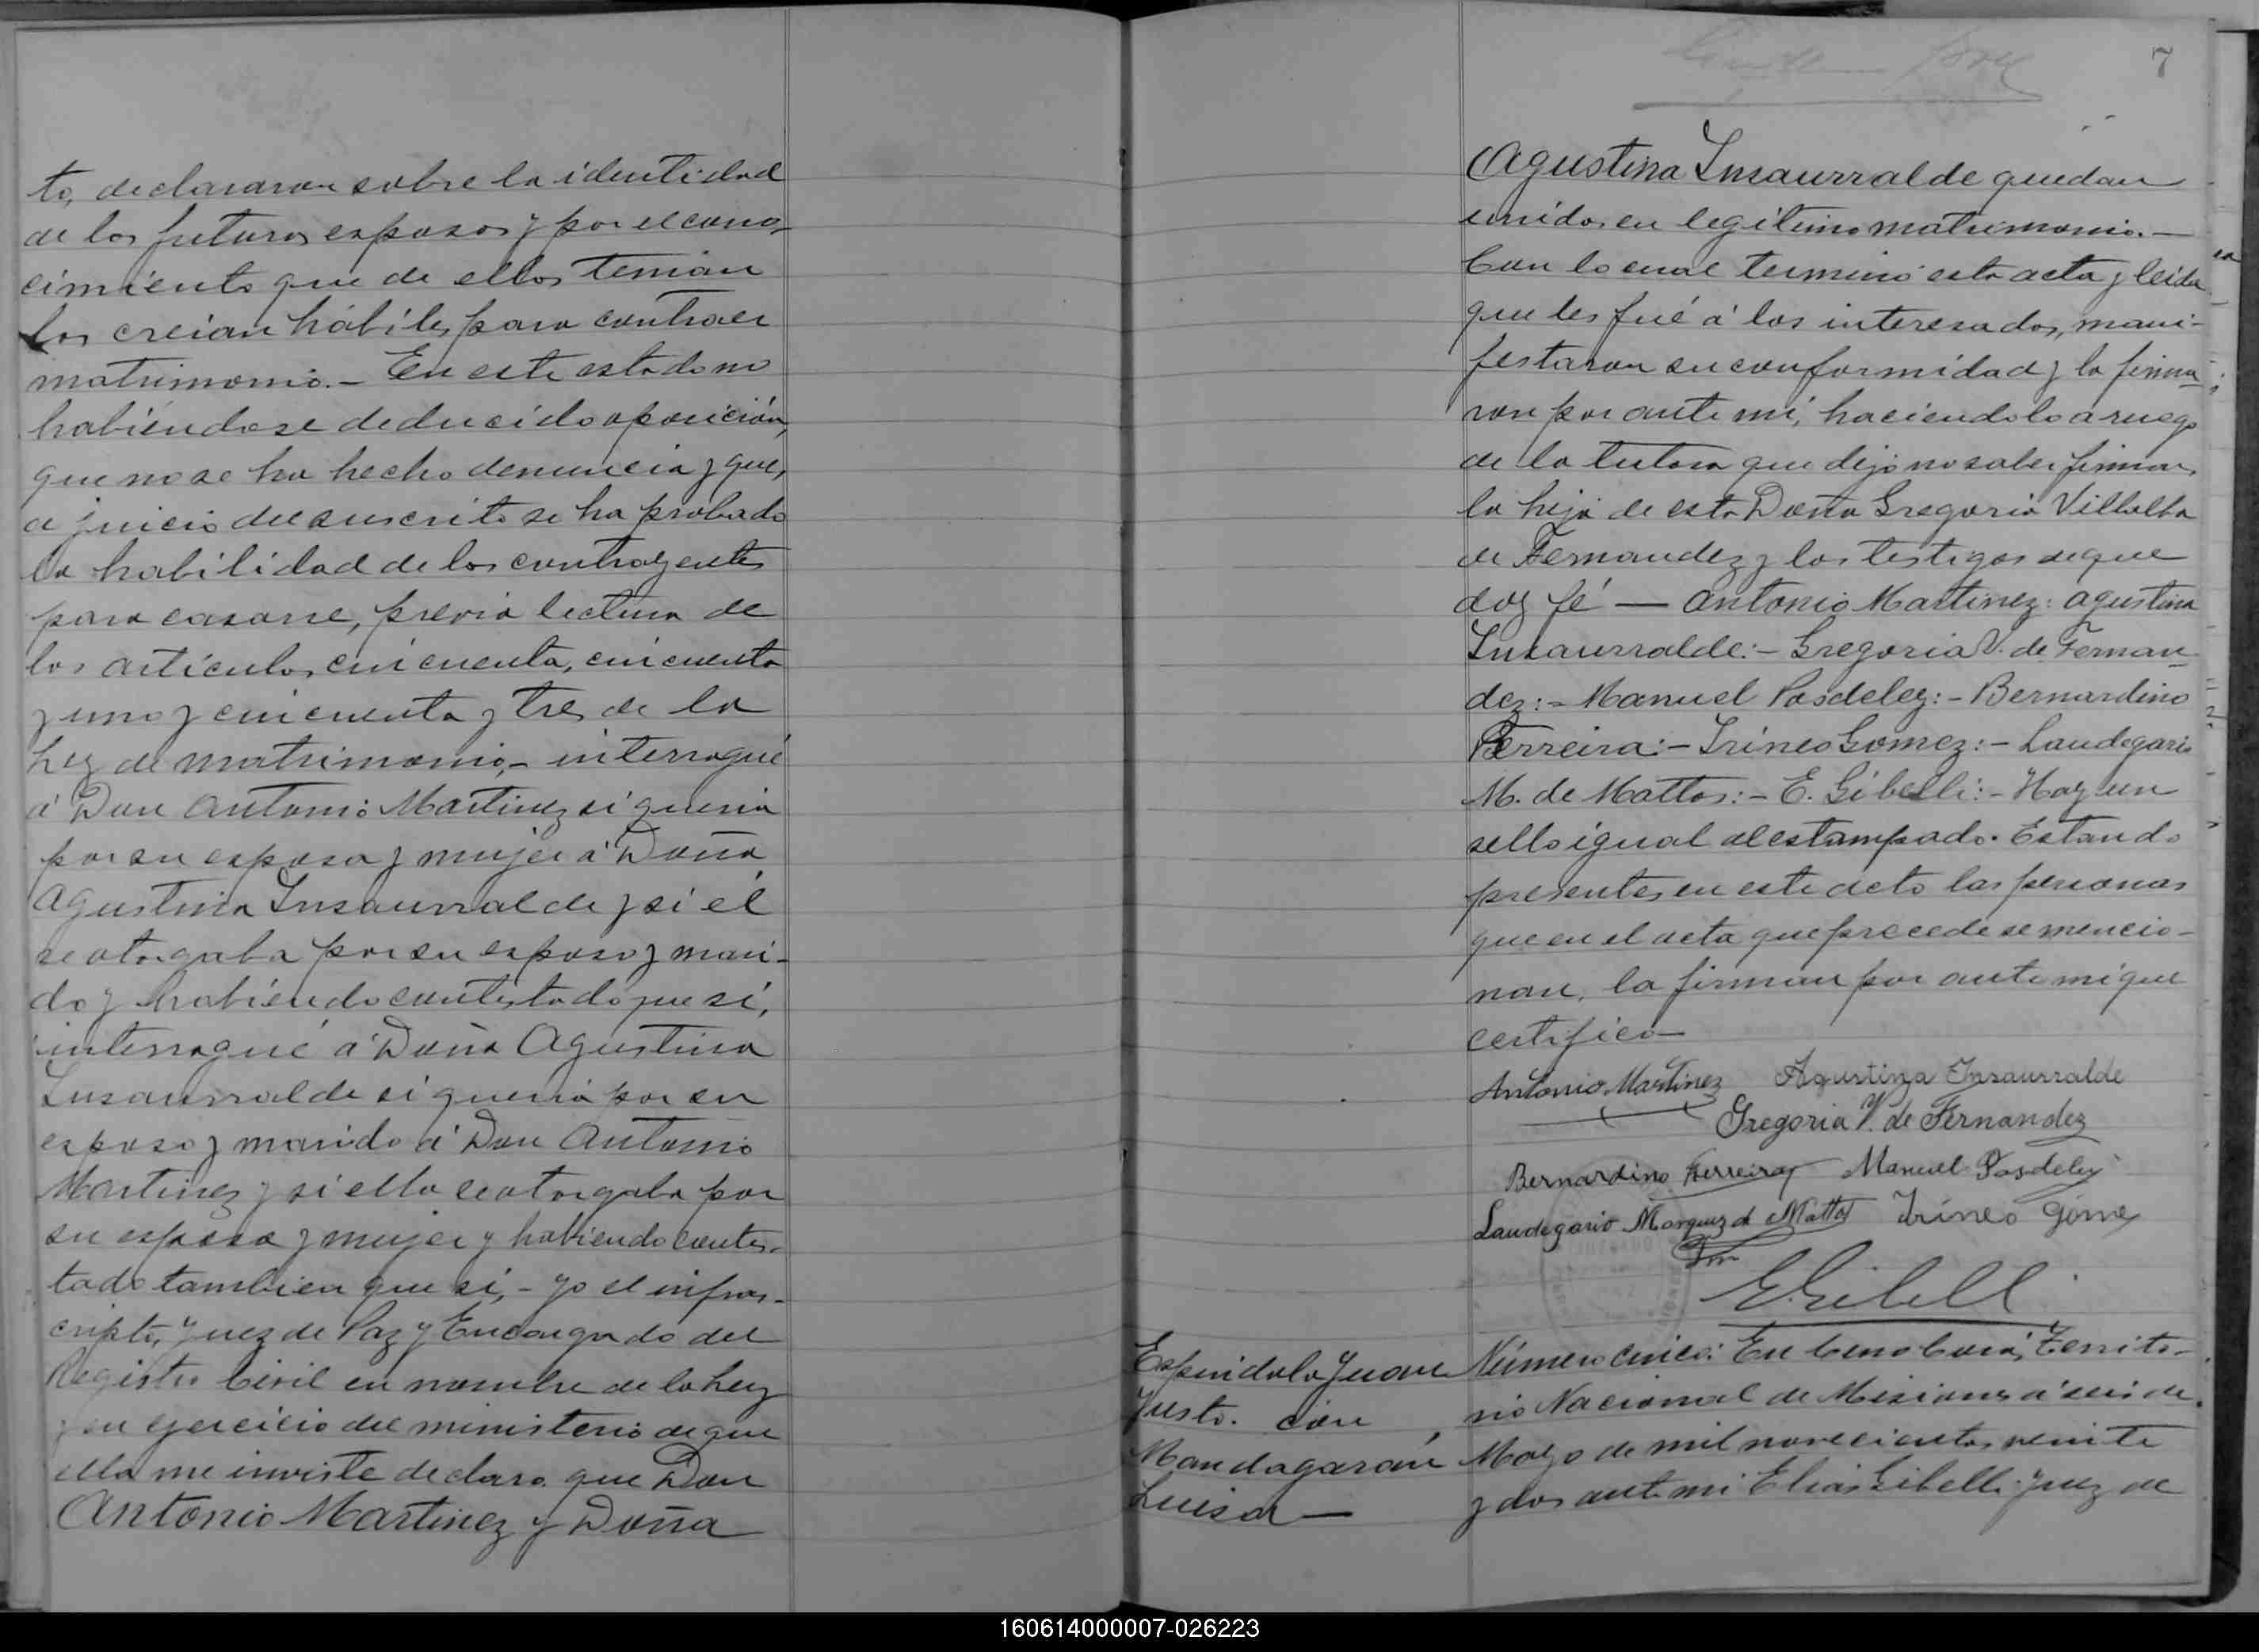 to, declararon sobre la identidad
de los futuros esposos y por el cono-
cimiento que de ellos tenian
los creian hábiles para contraer
matrimonio.- En este estado no
habiéndose deducido oposición,
que no se ha hecho denuncia y que,
a juicio del suscrito se ha probado
la habilidad de los contrayentes
para casarse, previa lectura de
los artículos cincuenta, cincuenta
y uno y cincuenta y tres de la
Ley de matrimonio,- interrogué
á Don Antonio Martinez si queria
por su esposa y mujer á Doña
Agustina Insaurralde y si él
se otorgaba por su esposo y mari-
do y habiendo contestado que sí,
interrogué á Doña Agustina
Insaurralde si queria por su
esposo y marido á Don Antonio
Martinez y si ella se otorgaba por
su esposa y mujer y habiendo contes-
tado tambien que sí,- yo el infras-
cripto, Juez de Paz y Encargado del
Registro Civil en nombre de la Ley
y en ejercicio del ministerio de que
ella me inviste declaro que Don
Antonio Martinez y Doña
7
Agustina Insaurralde quedan
unidos en legítimo matrimonio.-
Con lo cual terminó esta acta y leida
que les fué á los interesados, mani-
festaron su conformidad y la firma-
ron por ante mí, haciendolo a ruego
de la tutora que dijo no saber firmar,
la hija de esta Doña Gregoria Villalba
de Fernandez y los testigos de que
doy fé — Antonio Martinez: Agustina
Insaurralde:- Gregoria V. de Fernan-
dez:- Manuel Posdeley:- Bernardino
Ferreira:- Irineo Gomez:- Laudegario
M. de Mattos:- E. Gibelli:- Hay un
sello igual al estampado. Estando
presentes en este acto las personas
que en el acta que precede se mencio-
nan, la firman por ante mi que
certifico—
Antonio Martinez Agustina Insaurralde
Gregoria V. de Fernandez
Bernardino Ferreira Manuel Posdeley
Laudegario Marquez d Mattos Irineo Gomez
E Gibelli
Espindola Juan
Justo. con
Mandagarán
Luisa—
Número cinco: En Cerro Corá, Territo-
rio Nacional de Misiones á seis de
Mayo de mil novecientos veinte
y dos ante mi Elias Gibelli Juez de
160614000007-026223